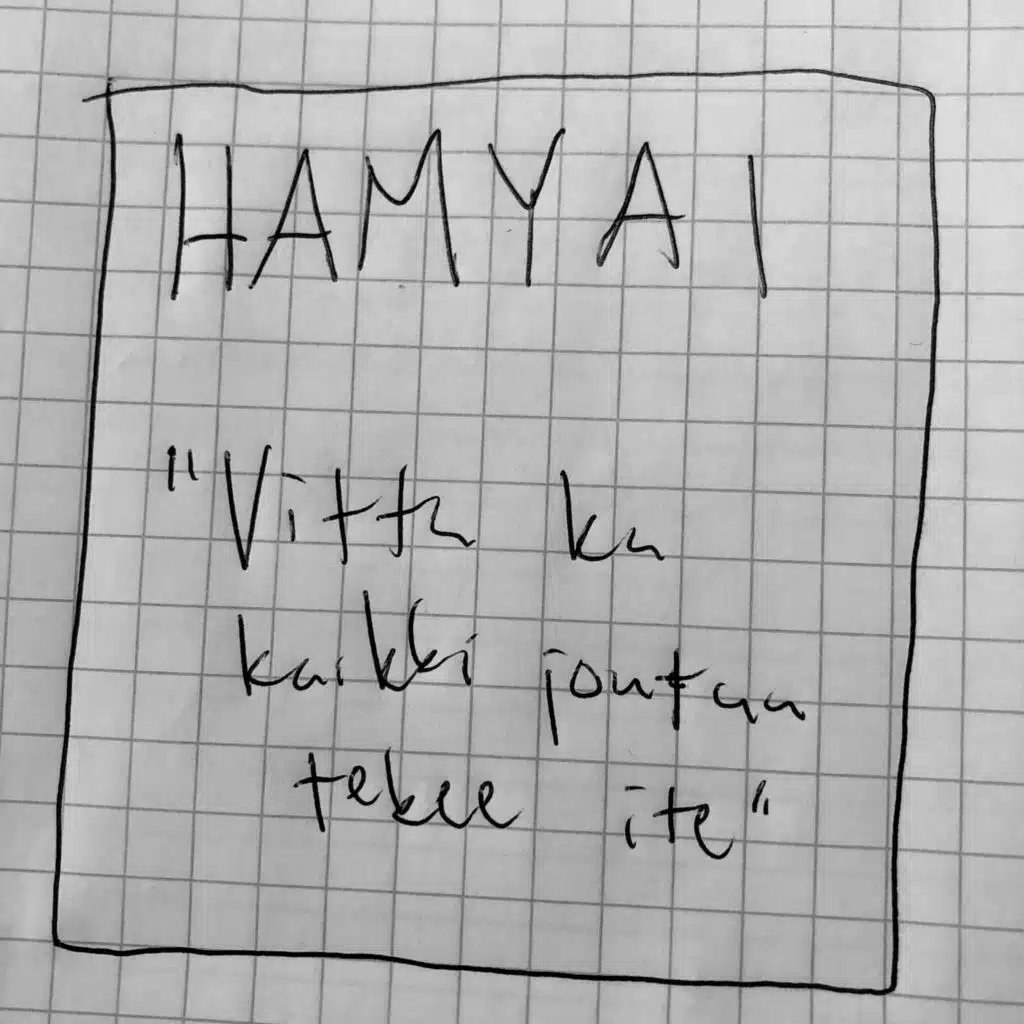 HAMYAI
"Vittu ku
kaikki joutuu
tekee ite"